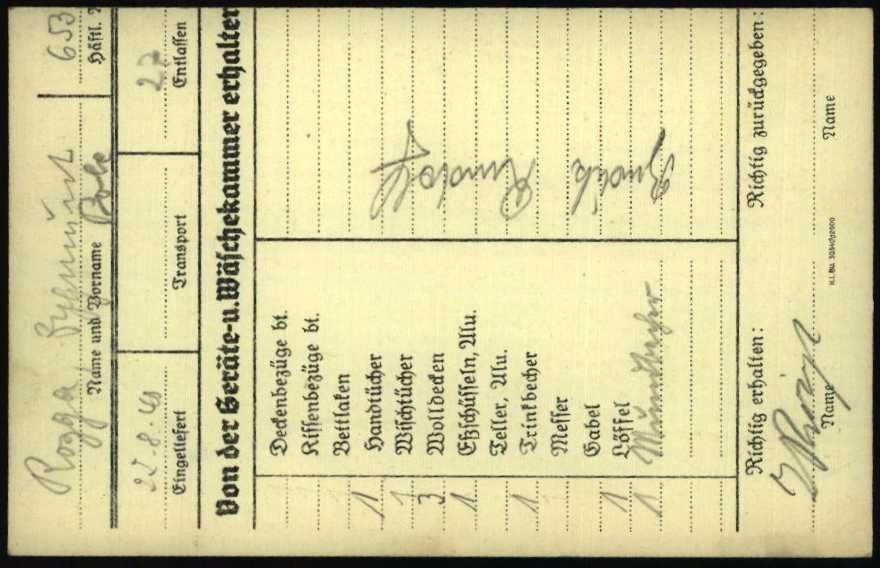 Rogga, Zygmunt 653
Name und Vorname Pole Häftl.
22.8.40 27
Eingeliefert Transport Entlassen
Von der Geräte-u.Wäschekammer erhalten
Deckenbezüge bt.
Kissenbezüge bt.
Bettlaken
1 Handtücher
1 Wischtücher
3 Wolldecken
1 Eßschüsseln, Alu.
Teller, Alu.
1 Trinkbecher
Messer
Gabel
1 Löffel
1 Mundbecher
Richtig erhalten: Richtig zurückgegeben:
Name Name